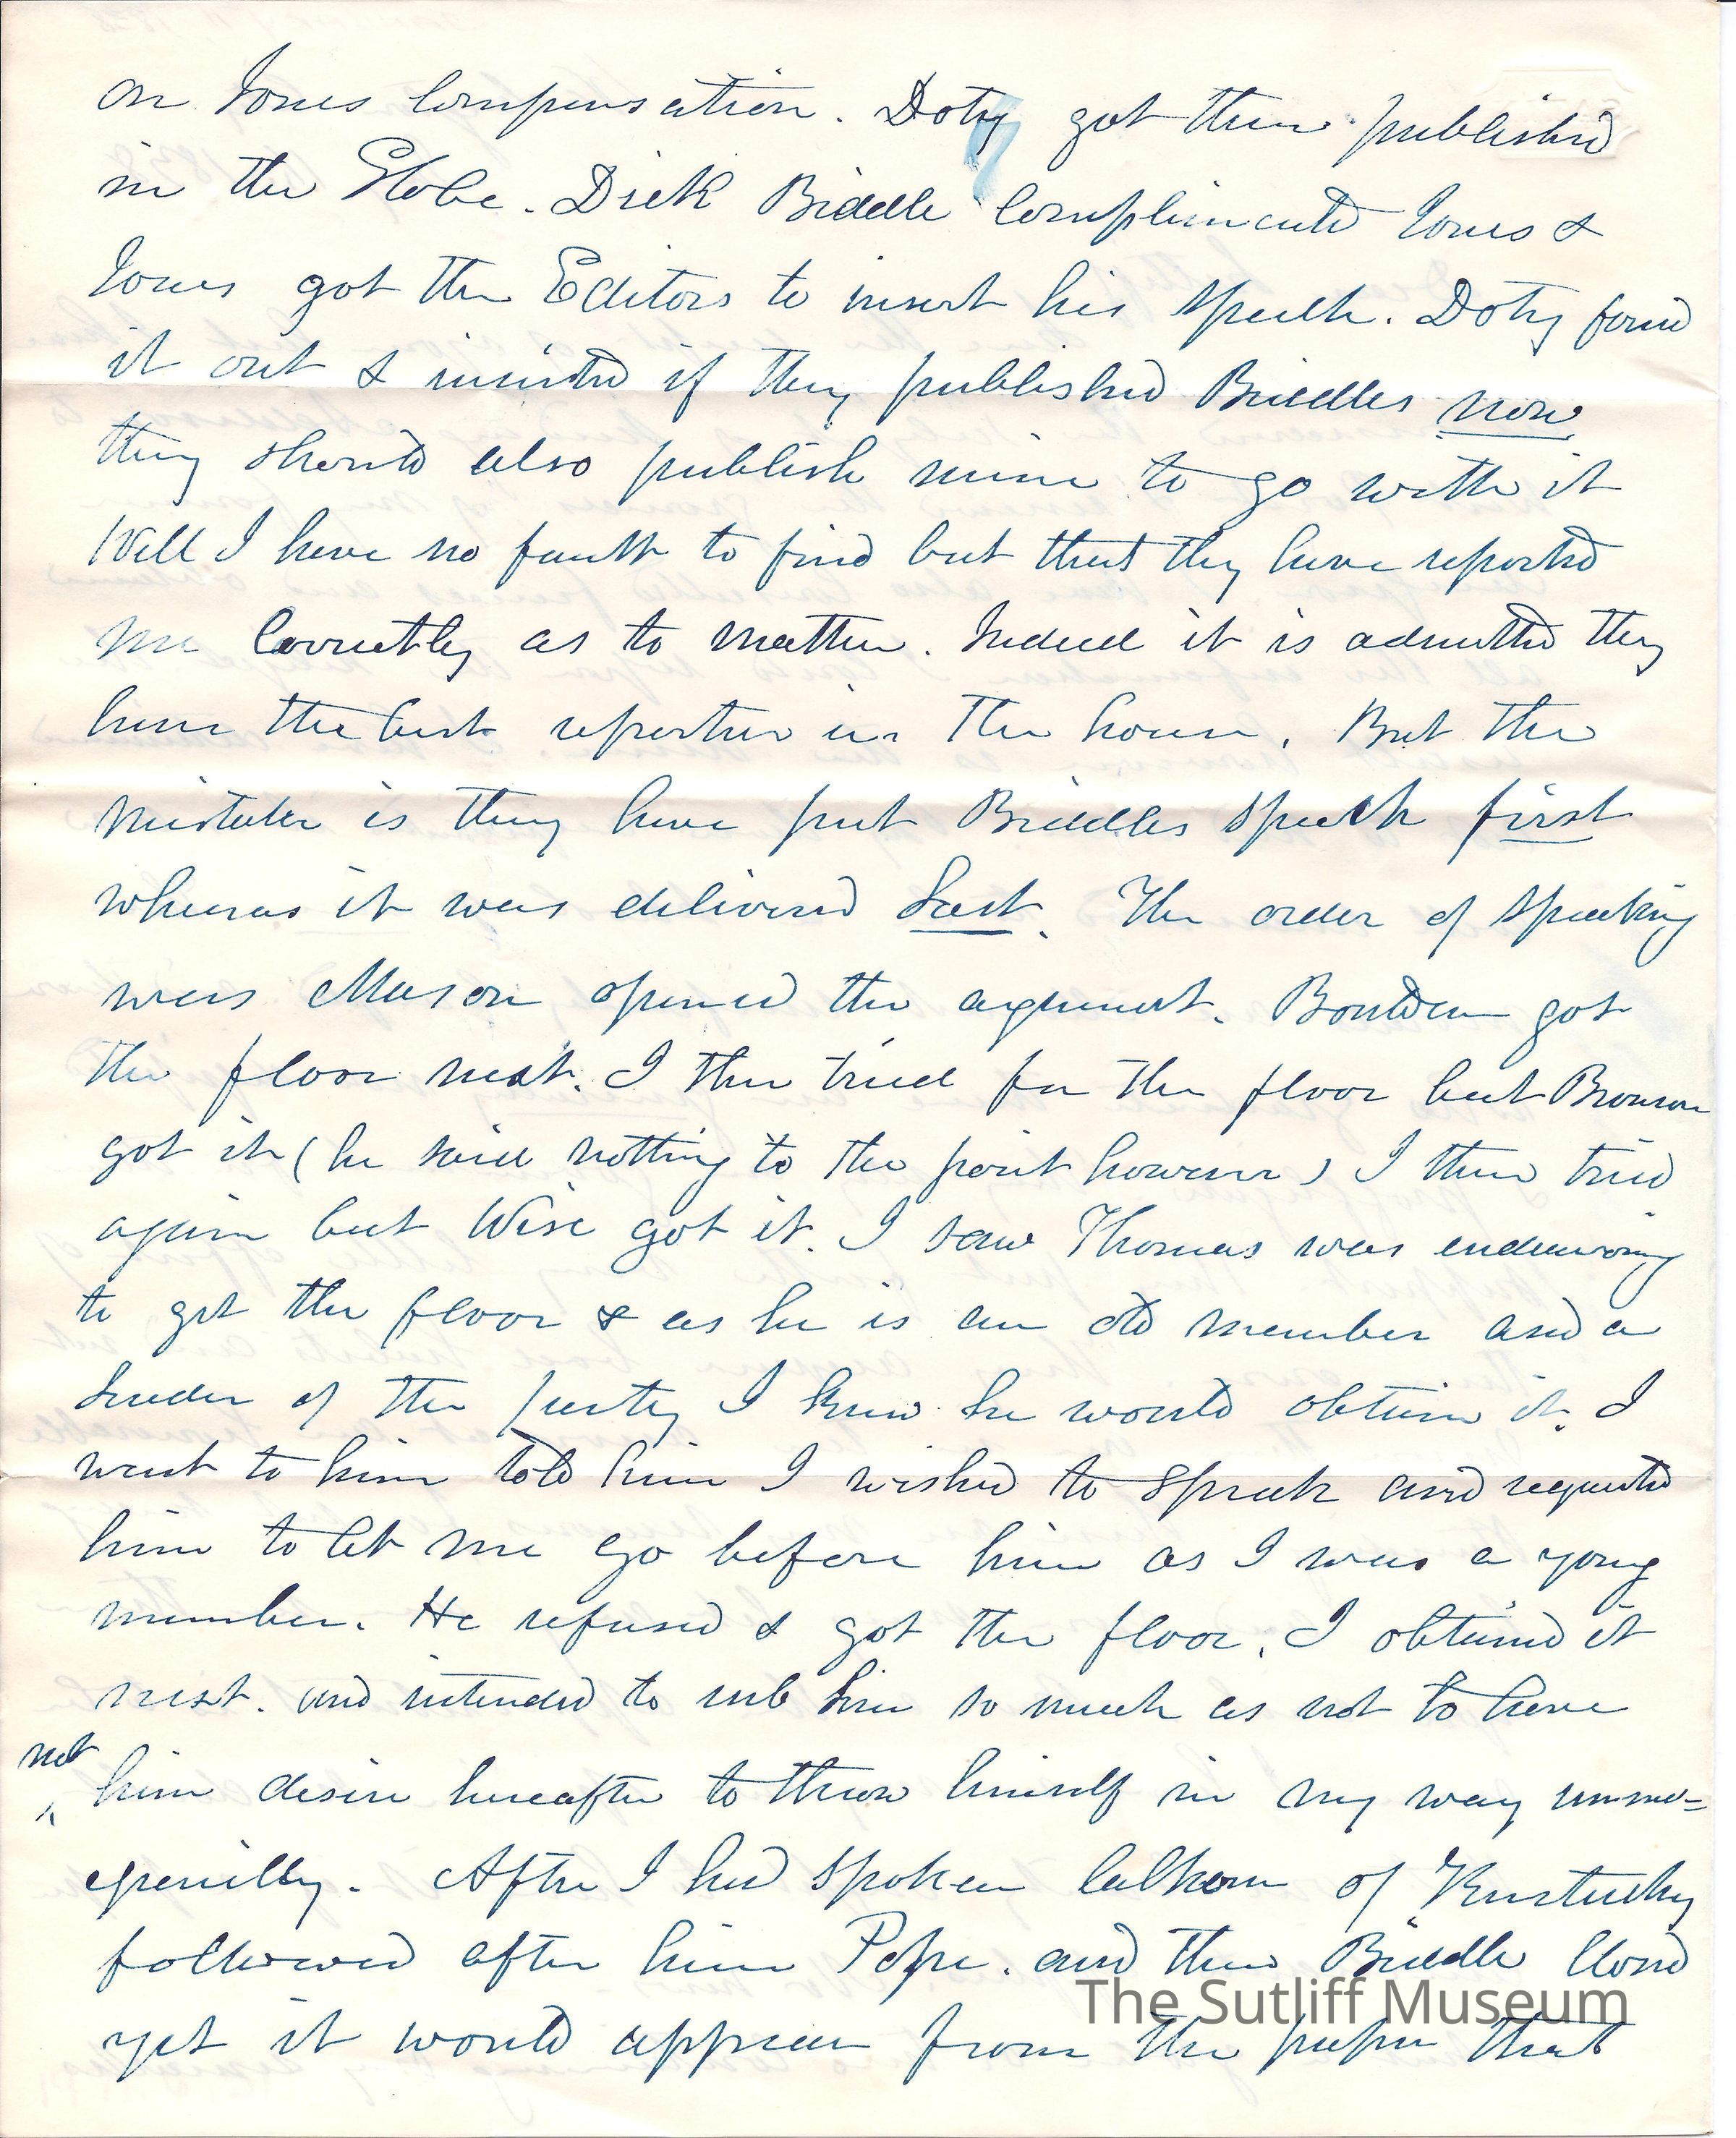 on Jones Compensation. Doty got them published
in the Globe. Dick Biddle Complimented Jones &
Jones got the Editors to insert his speech. Doty found
it out & insisted if they published Biddles now
they should also publish mine to go with it
Well I have no fault to find but that they have reported
me Correctly as to matter. Indeed it is admitted they
have the best reporter in the house. But the
mistake is they have put Biddles speech first
whereas it was delivered Last. The order of speaking
was Mason opened the argument. Bouldin got
the floor next. I then tried for the floor but Bronson
got it (he said nothing to the point however) I then tried
again but Wise got it. I saw Thomas was endeavoring
to get the floor & as he is an old member and a
Leader of the party I knew he would obtain it. I
went to him told him I wished to speak and requested
him to let me go before him as I was a young
member. He refused & got the floor. I obtained it
next. and intended to rub him so much as not to have
not
him desire hereafter to throw himself in my way unne=
cessarilly. After I had spoken Calhoon of Kentucky
followed after him Pope. and then Biddle Closed
yet it would appear from the paper that
The Sutliff Museum